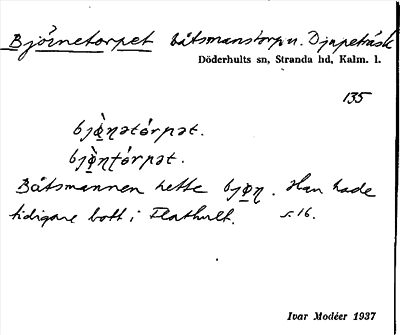 Björnetorpet båtsmanstorp u. Djupeträsk
Döderhults sn, Stranda hd, Kalm. l.
135
bjø̀ɳətórpət.
bjø̀ɳtórpət.
Båtsmannen hette bjøɳ. Han hade
tidigare bott i Flathult. s. 16.
Ivar Modéer 1937